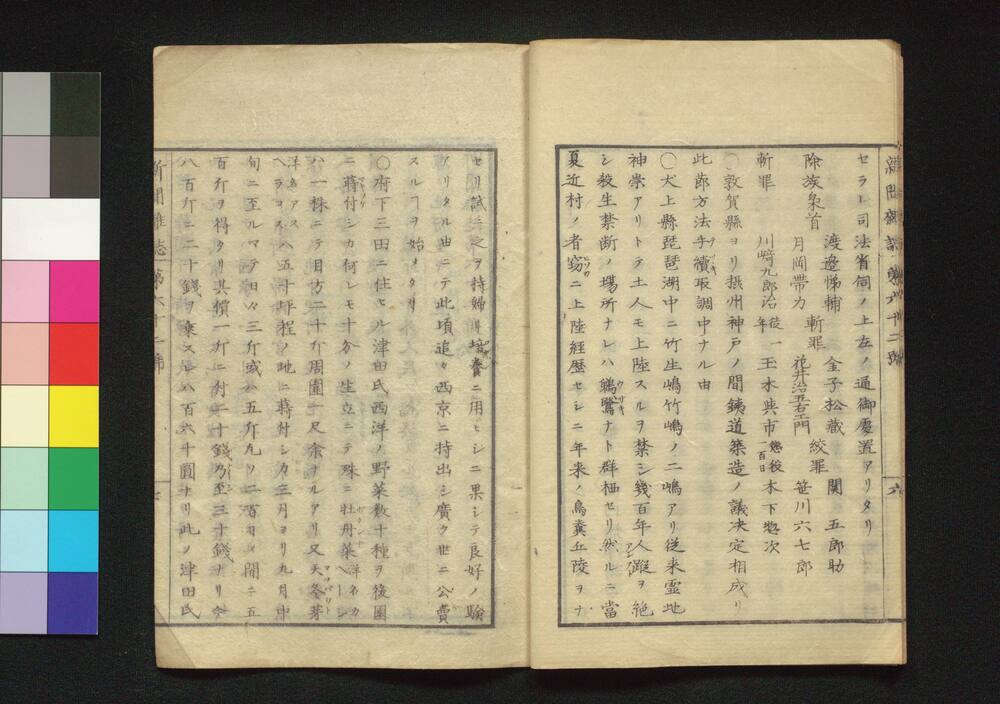 新聞雜誌 第六十二號 六
セラレ司法省伺ノ上左ノ通御處置アリタリ
渡邉悌輔 金子松藏 関 五郎助
除族梟首 月岡帯力 斬罪 花井治五右エ門 絞罪 笹川六七郎
斬罪 川﨑九郎治 徒一年 玉木與市 懲役一百日 木下惣次
〇敦賀縣ヨリ摂州神戸ノ間銕道築造ノ議决定相成リ
此節方法手續取調中ナル由
〇犬上縣琵琶湖中ニ竹生嶋竹嶋ノ二嶋アリ従来霊地
神崇アリトテ土人モ上陸スルヲ禁シ幾百年人蹤ヲ絶
シ殺生禁断ノ場所ナレハ鵜鷺ナト群栖セリ然ルニ當
夏近村ノ者窃ニ上陸経歴セシニ年来ノ鳥糞丘陵ヲナ
セリ試ニ之ヲ持帰リ培養ニ用ヒシニ果シテ良好ノ験
アリタル由ニテ此頃追々西京ニ持出シ廣ク世ニ公賣
スルヿヲ始メタリ
〇府下三田ニ住セル津田氏西洋ノ野菜数十種ヲ後園
ニ蒔付シカ何レモ十分ノ生立ニテ殊ニ牡丹菜洋名カヘーシ
ハ一株ニテ目方二十斤周圍一尺余ヲルアリ又天冬芽
洋名アスヘラコスハ五十坪程ノ地ニ蒔付シカ三月ヨリ九月中
旬ニ至ルマテ日々三斤或ハ五斤凢ソ二百日ノ間ニ五
百斤ヲ得タリ其價一斤ニ付二十錢乃至三十錢ナリ今
八百斤ニ二十錢ヲ乗スレハ百六十圓ナリ此ノ津田氏
新聞雜誌 第六十二號